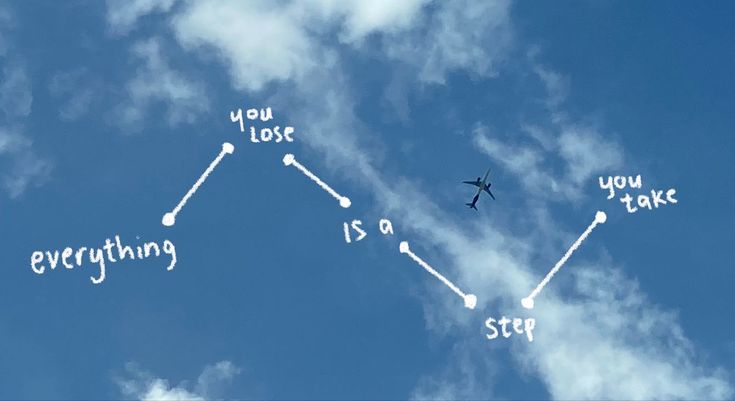 everything
you
lose
is a
step
you
take